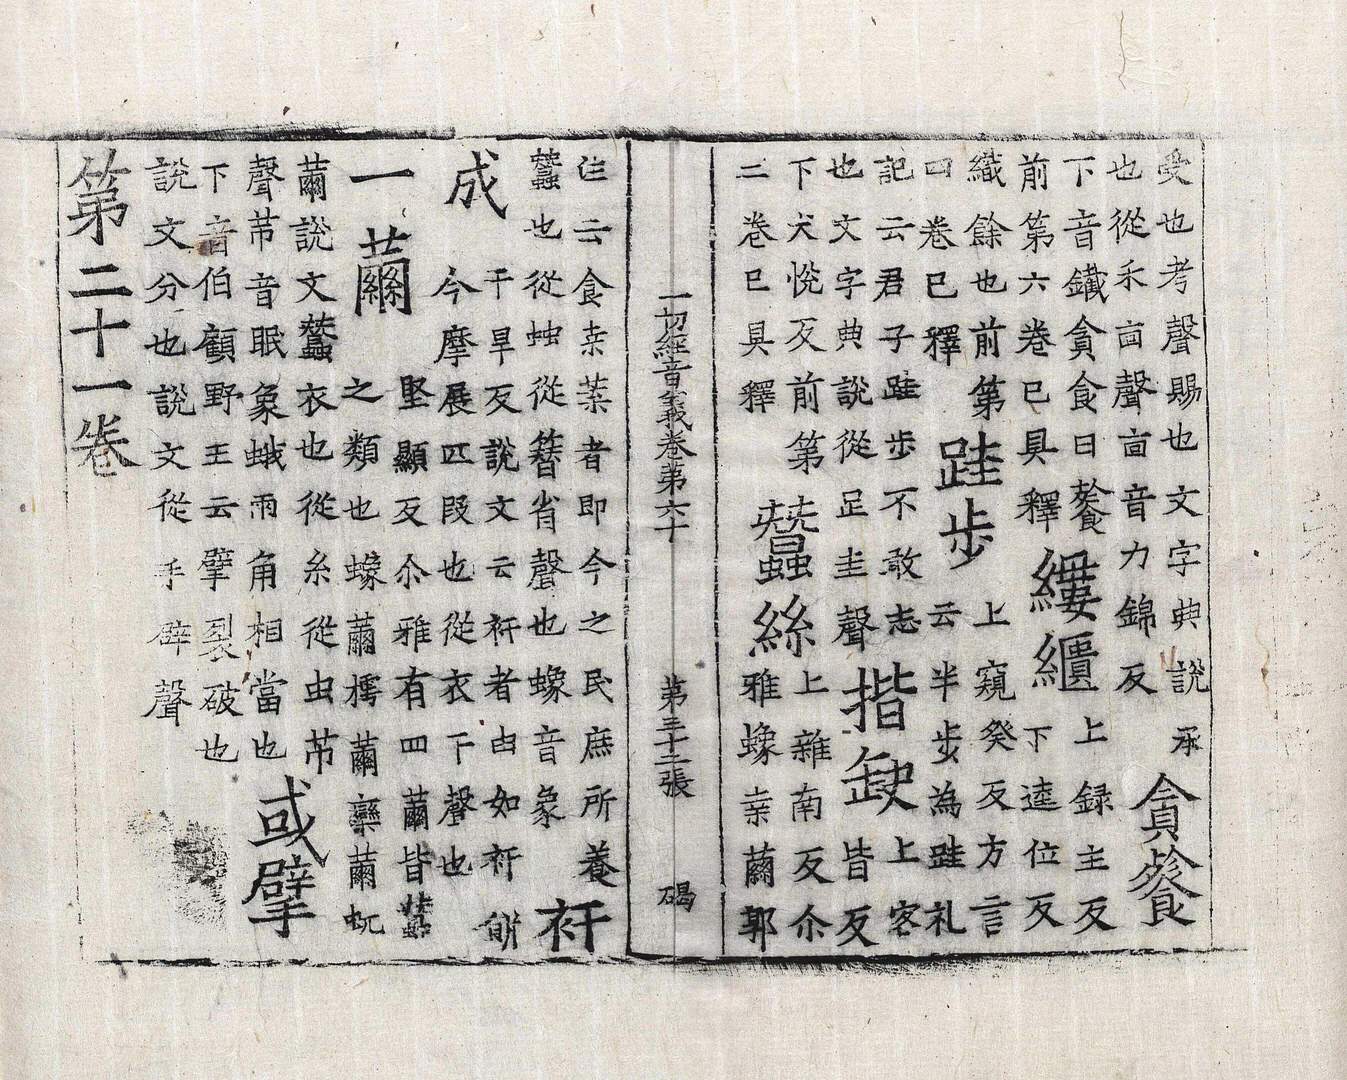 受也考聲賜也文字典說承
也從禾㐭聲㐭音力錦反
貪餮
下音鐵貪食曰餮
前第六卷已具釋
縷繢
上録主反
下逵位反
織餘也前第
四卷已釋
跬步
上窺癸反方言
云半步為跬礼
記云君子跬步不敢志
也文字典說從足圭聲
揩缺
上客
皆反
下犬悅反前第
二卷已具釋
蠶絲
上雜南反尒
雅蟓桒繭郭
一切經音義卷第六十 第三十二張 碣
注云食桒葉者即今之民庶所養
蠶也從䖵從朁省聲也蟓音象
衦
成
干旱反說文云衦者由如衦餅
今摩展匹段也從衣干聲也
一繭
堅顯反尒雅有四繭皆蠶
之類也蟓繭樗繭欒繭蚢
繭說文蠶衣也從糸從虫芇
聲芇音眠象蛾兩角相當也
或擘
下音伯顧野王云擘裂破也
說文分也說文從手辟聲
第二十一卷